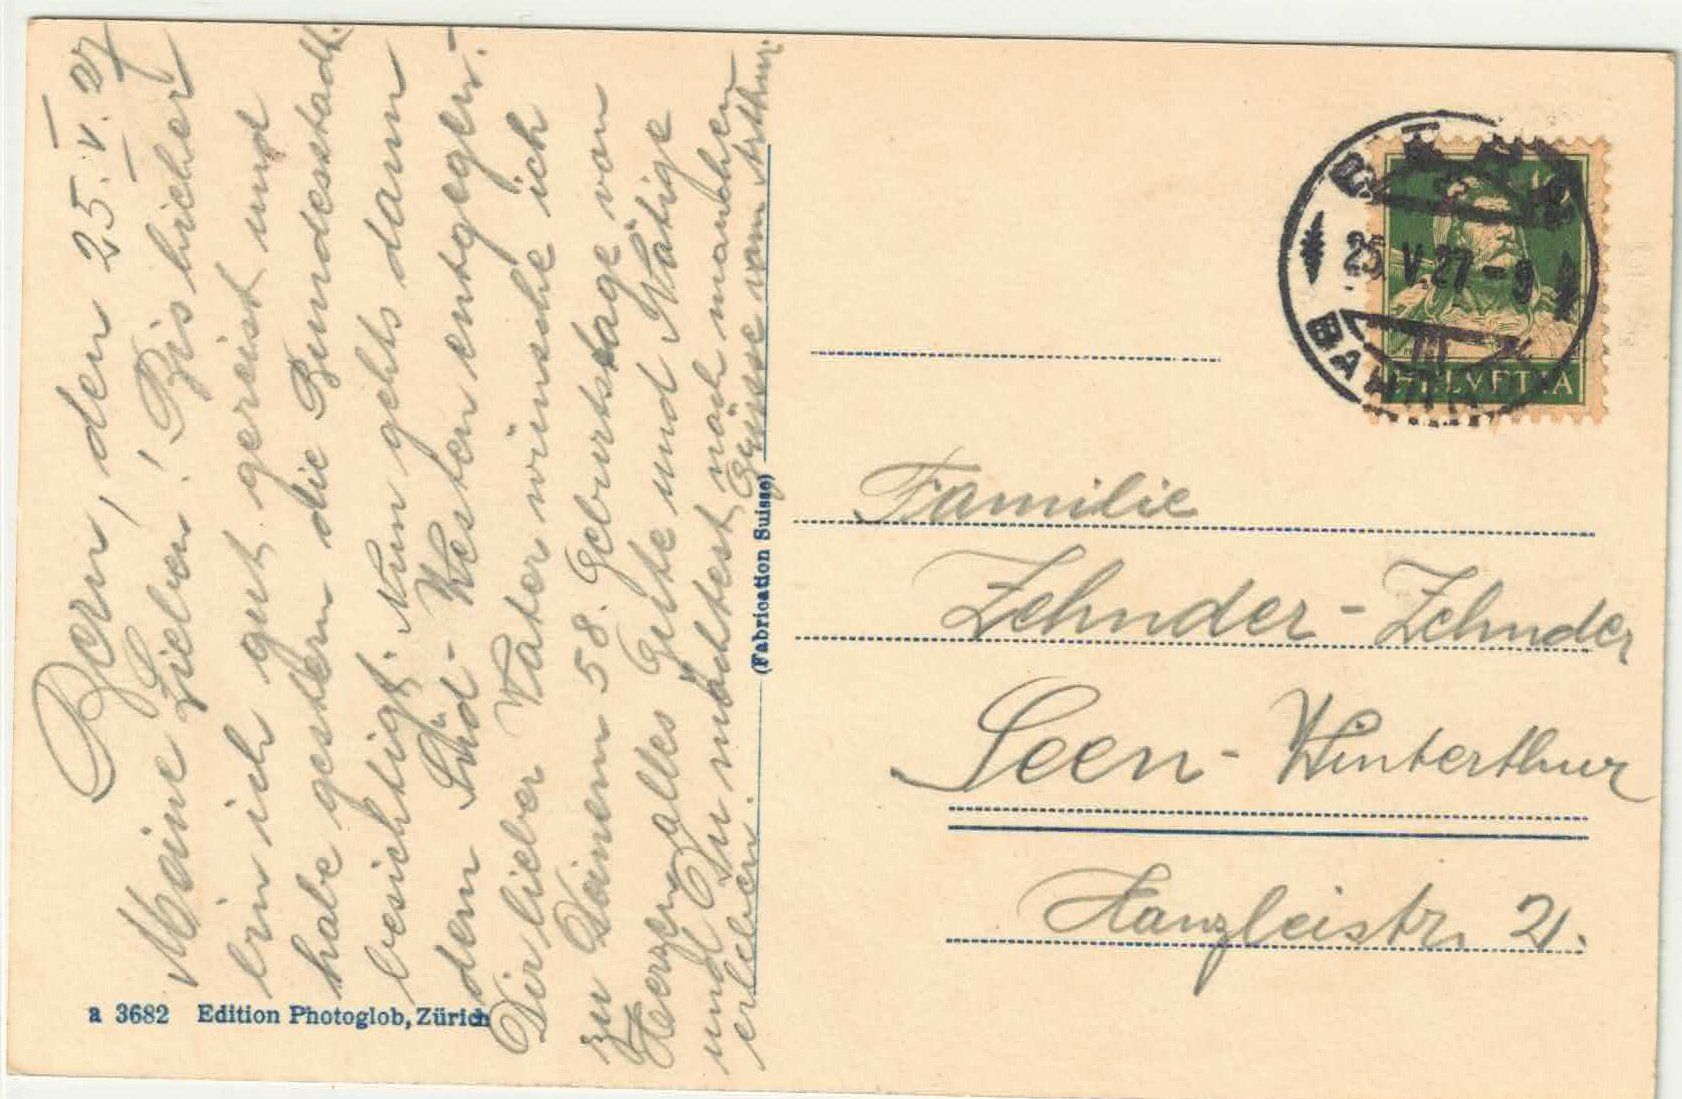 Bern, den 25. V. 27
Meine Lieben! Bis hieher
bin ich gut gereist und
habe gestern die Bundesstadt
besichtigt. Nun gehts dann
dem Süd-Westen entgegen.
Dir lieber Vater wünsche ich
zu Deinem 58. Geburtstage von
Herzen alles Gute und
und Du möchtest noch manchen
erleben. Grüsse von Arthur.
a 3682 Edition Photoglob, Zürich
(Fabrication Suisse)
25. V. 27 - 9
III
HELVETIA
Familie
Zehnder-Zehnder
Seen-Winterthur
Kanzleistr. 21.